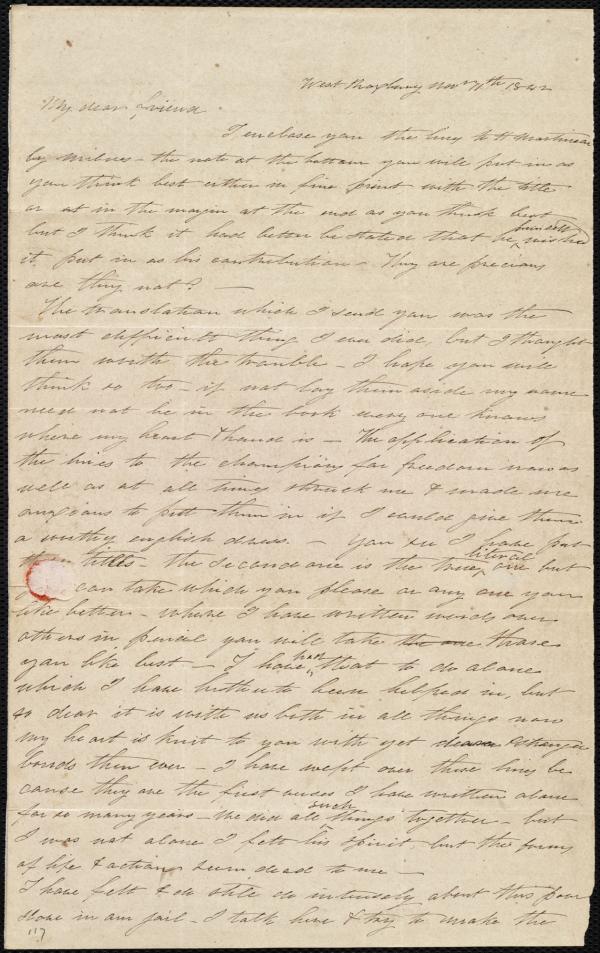 West Roxbury Nov 11th 1842
My dear friend
I enclose you the lines to H Martineau
by Milnes - the note at the bottom you will put in as
you think best either in fine print with the title
or at in the margin at the end as you think best
but I think it had better be stated that he himself wished
it put in as his contribution - They are precious
are they not? —
The translation which I send you was the
most difficult thing I ever did, but I thought
them worth the trouble - I hope you will
think so too - if not lay them aside my name
need not be in the book every one knows
where my heart & hand is - The application of
the lines to the champions for freedom now as
well as at all times struck me & made me
anxious to put them in if I could give them
a worthy english dress. - You see I have put
titles - the second one is the true literal one but
can take which you please or any one you
like better - where I have written words over
others in pencil you will take the one those
you like best - I have had that to do alone
which I have hitherto been helped in, but
so dear it is with us both in all things now
my heart is knit to you with yet & stronger
bonds than ever - I have wept over these lines be
cause they are the first verses I have written alone
for so many years - We did all such things together - but
I was not alone I felt his spirit - but the forms
of life & action seem dead to me —
I have felt & do still do intensely about this poor
slave in our jail - I talk here & try to make the
117